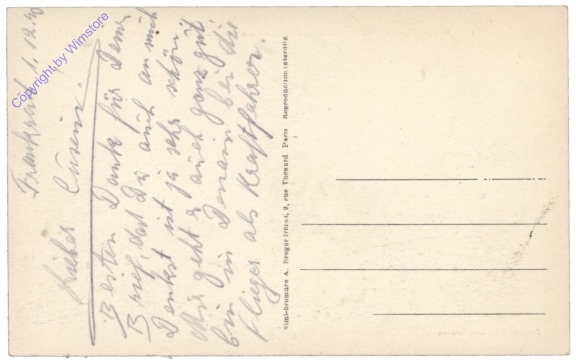 Frankreich 1.12.40
Lieber Cusein.
Besten Dank für Dein
Brief, das Du auch an mich
Denkst ist ja sehr schön
Mir geht es auch ganz gut
bin in Denain bei die
Flieger als Kraftfahrer.
Simi-bromure A. Breger Frères, 9, rue Thénard Paris Reproduction interdite
Copyright by Wimstore